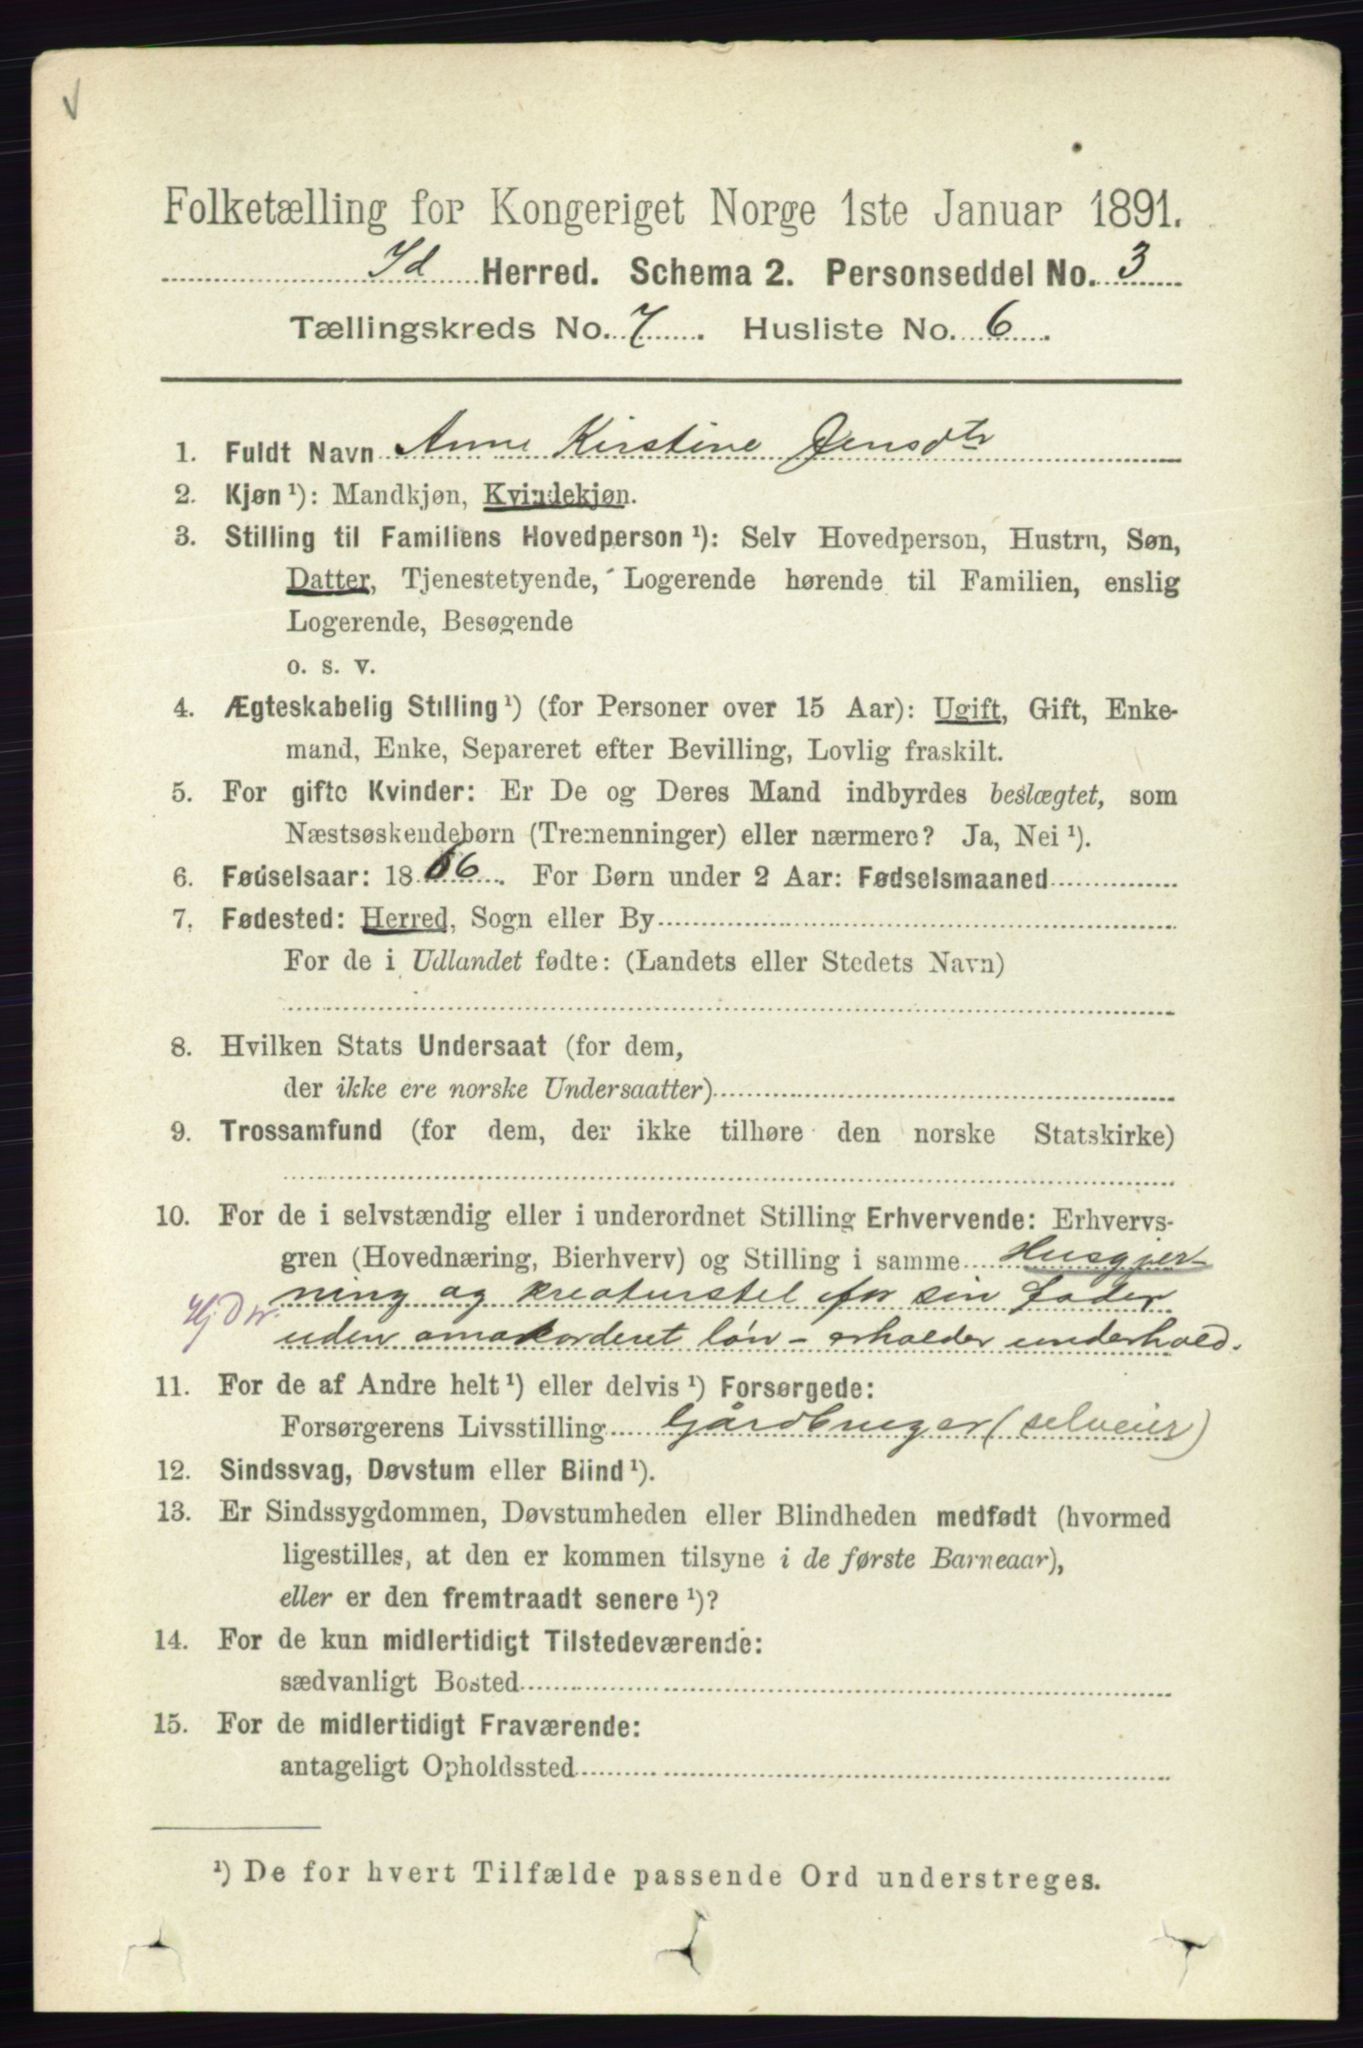 Folketælling for Kongeriget Norge 1ste Januar 1891.
Id Herred. Schema 2. Personseddel No. 3
Tællingskreds No. 7. Husliste No. 6.
1. Fuldt Navn Anne Kirstine Jensdtr
2. Kjøn ¹): Mandkjøn, Kvindekjøn.
3. Stilling til Familiens Hovedperson ¹): Selv Hovedperson, Hustru, Søn,
Datter, Tjenestetyende, Logerende hørende til Familien, enslig
Logerende, Besøgende
o. s. v.
4. Ægteskabelig Stilling ¹) (for Personer over 15 Aar): Ugift, Gift, Enke-
mand, Enke, Separeret efter Bevilling, Lovlig fraskilt.
5. For gifte Kvinder: Er De og Deres Mand indbyrdes beslægtet, som
Næstsøskendebørn (Tremenninger) eller nærmere? Ja, Nei ¹).
6. Fødselsaar: 1866. For Børn under 2 Aar: Fødselsmaaned
7. Fødested: Herred, Sogn eller By
For de i Udlandet fødte: (Landets eller Stedets Navn)
8. Hvilken Stats Undersaat (for dem,
der ikke ere norske Undersaatter)
9. Trossamfund (for dem, der ikke tilhøre den norske Statskirke)
10. For de i selvstændig eller i underordnet Stilling Erhvervende: Erhvervs-
gren (Hovednæring, Bierhverv) og Stilling i samme Husgjer-
ning og kreaturstel for sin fader
Hj Dtr.
uden omakorderet løn - erholder underhold.
11. For de af Andre helt ¹) eller delvis ¹) Forsørgede:
Forsørgerens Livsstilling Gårdbruger (selveier)
12. Sindssvag, Døvstum eller Blind ¹).
13. Er Sindssygdommen, Døvstumheden eller Blindheden medfødt (hvormed
ligestilles, at den er kommen tilsyne i de første Barneaar),
eller er den fremtraadt senere ¹)?
14. For de kun midlertidigt Tilstedeværende:
sædvanligt Bosted
15. For de midlertidigt Fraværende:
antageligt Opholdssted
¹) De for hvert Tilfælde passende Ord understreges.